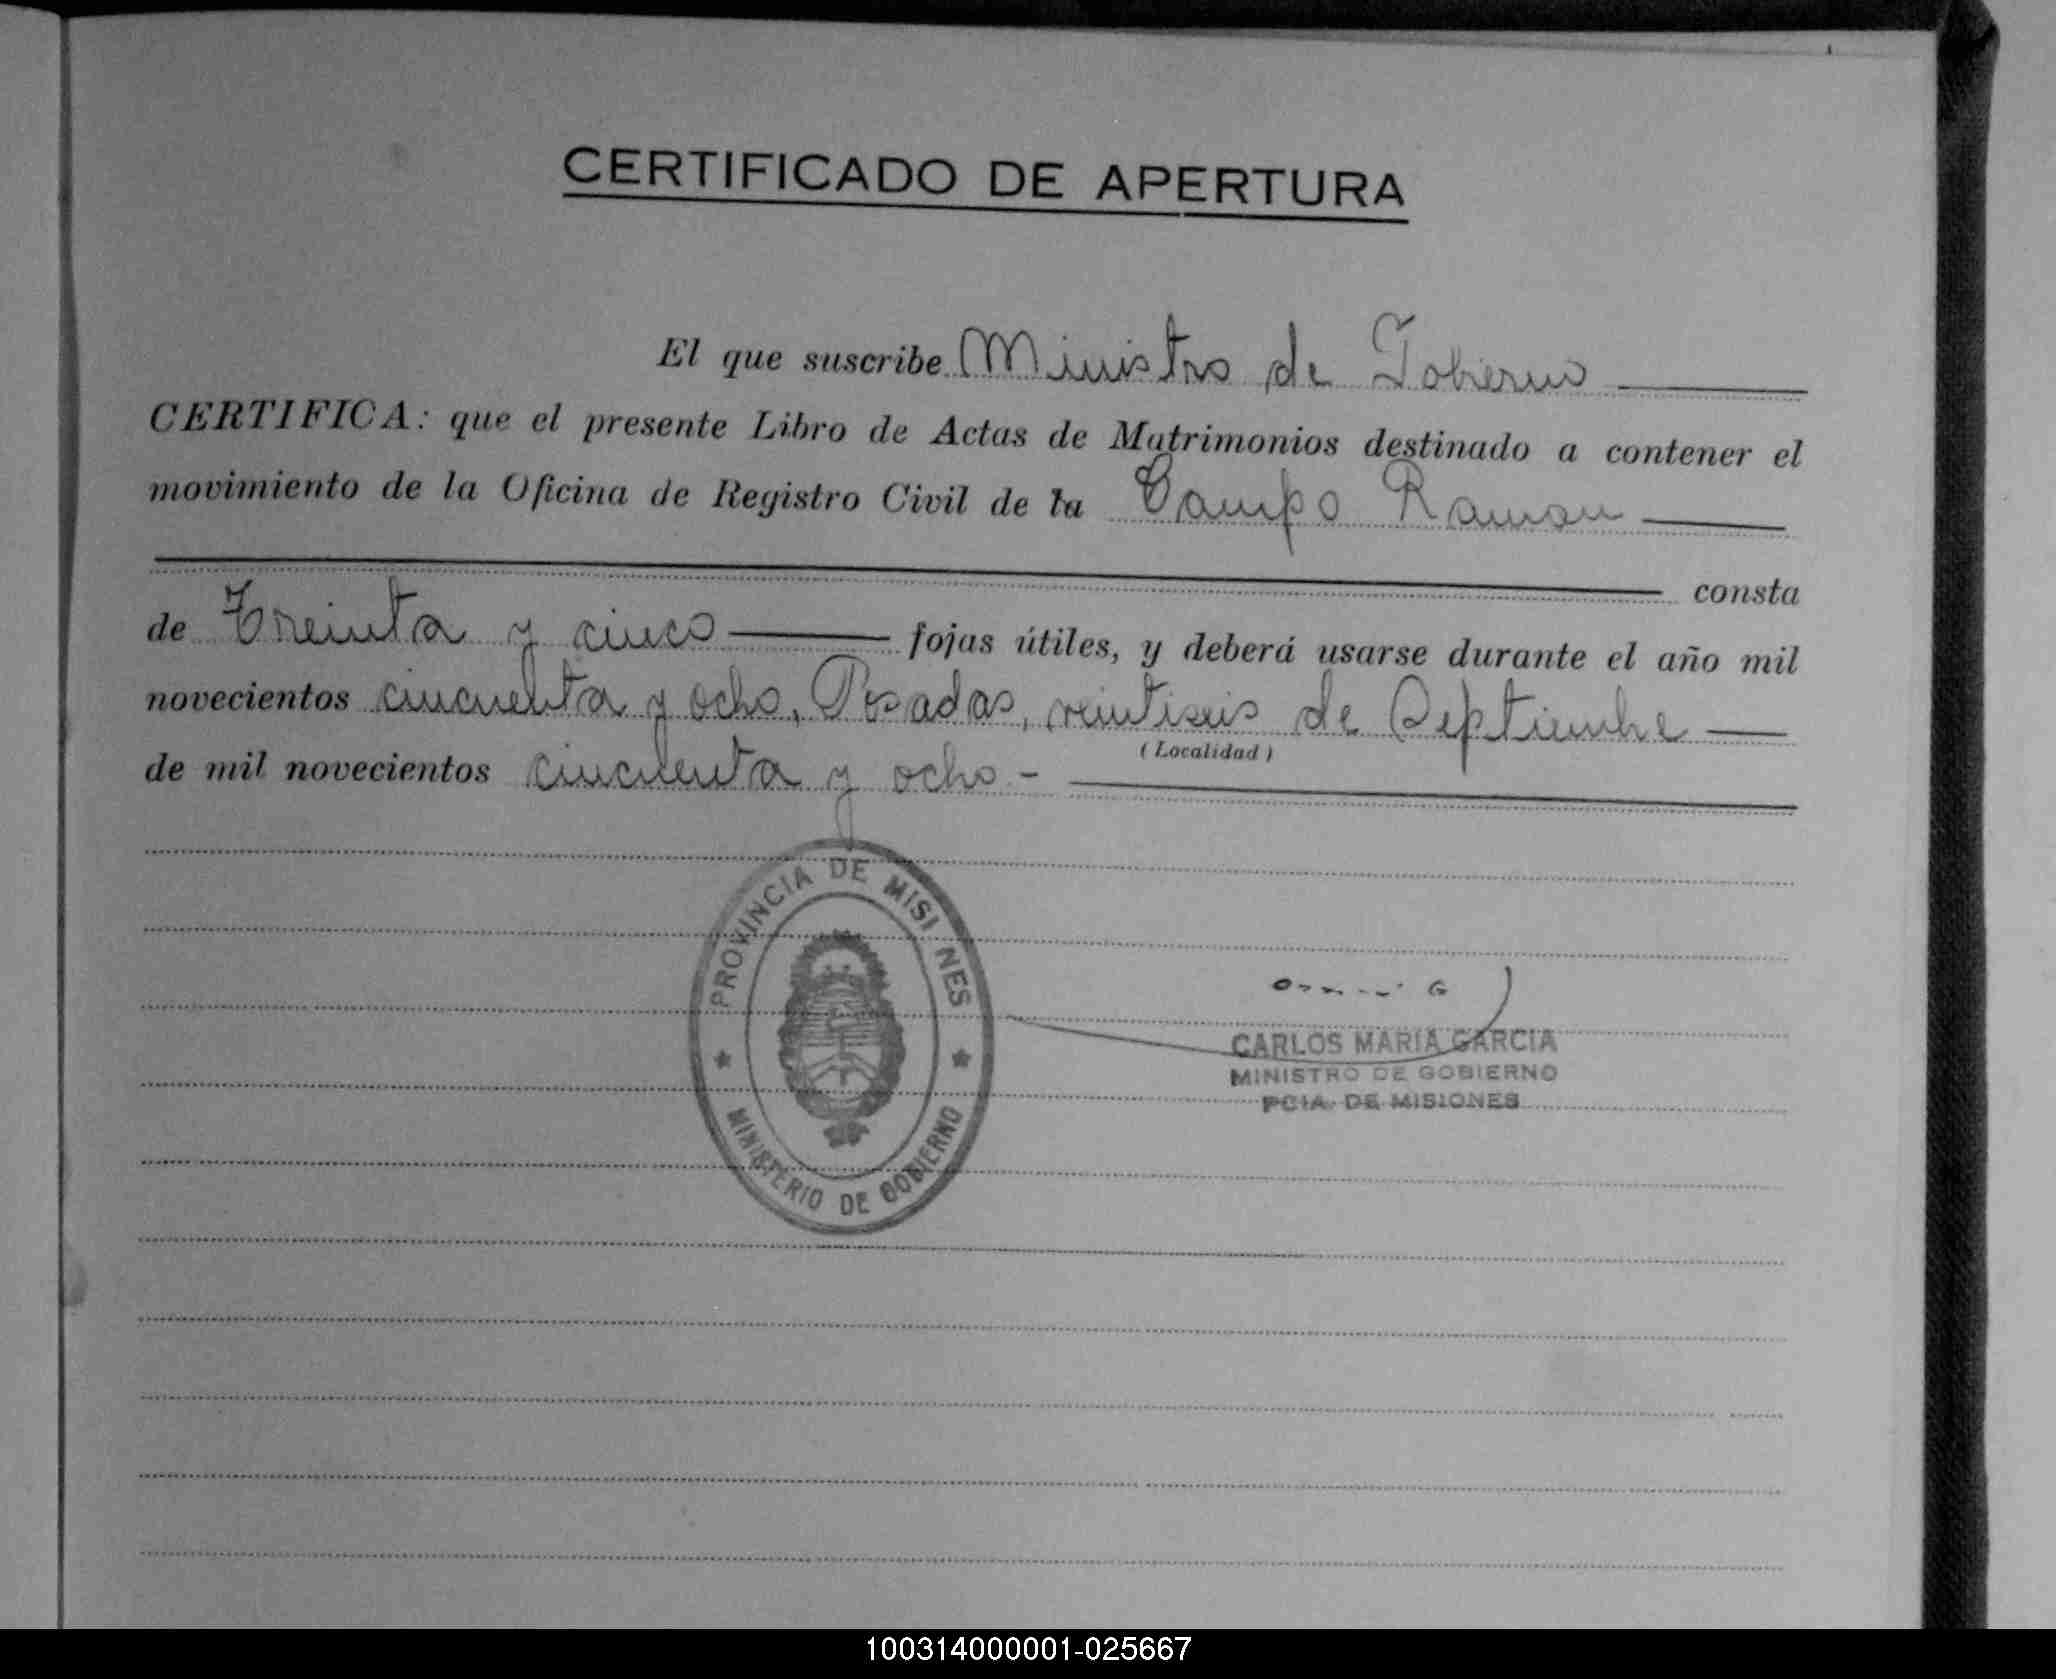 CERTIFICADO DE APERTURA
El que suscribe Ministro de Gobierno
CERTIFICA: que el presente Libro de Actas de Matrimonios destinado a contener el
movimiento de la Oficina de Registro Civil de la Campo Ramon
consta
de Treinta y cinco fojas útiles, y deberá usarse durante el año mil
novecientos cincuenta y ocho, Posadas, veintiseis de Septiembre
(Localidad)
de mil novecientos cincuenta y ocho.-
PROVINCIA DE MISI NES
MINISTERIO DE GOBIERNO
CARLOS MARIA GARCIA
MINISTRO DE GOBIERNO
PCIA. DE MISIONES
100314000001-025667